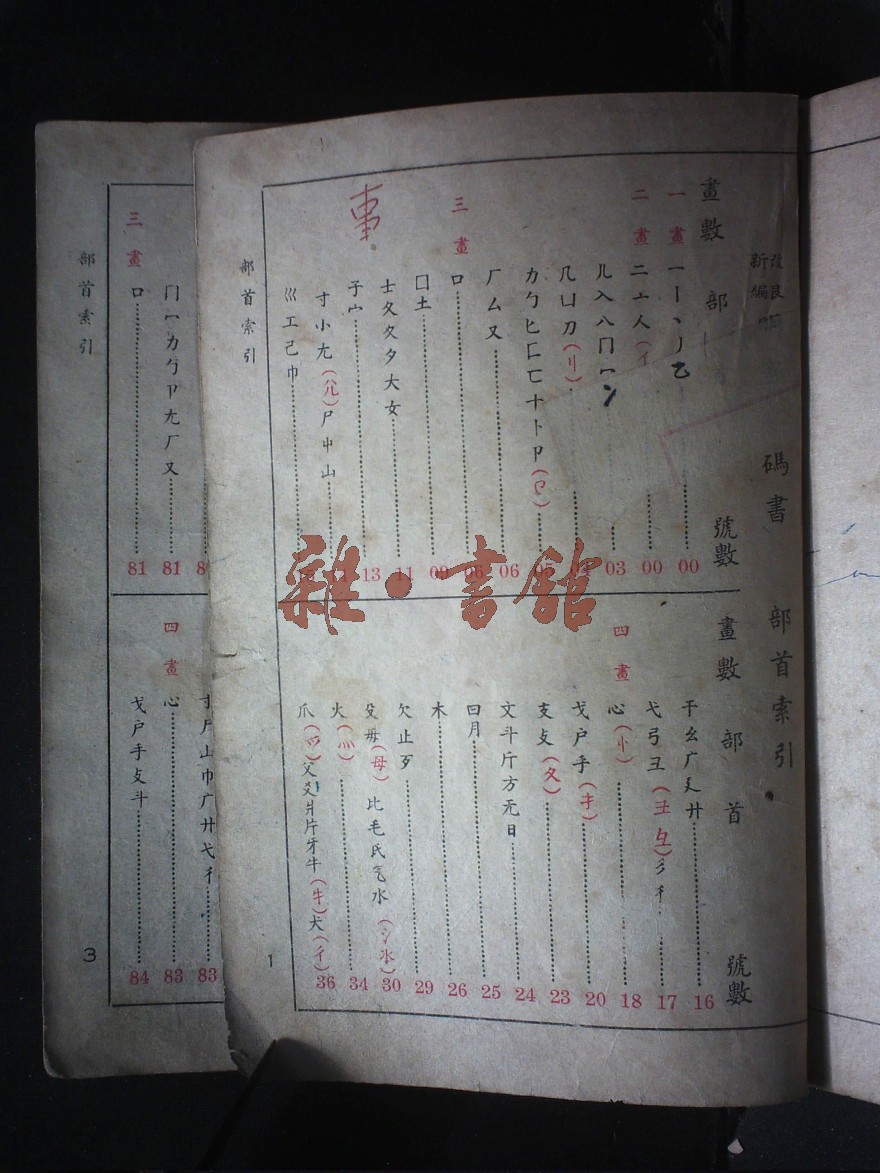 改良
新編
碼書 部首索引
畫數 部 號數
一畫 一丨丶丿乙 00
二畫 二亠人(亻 00
儿入八冂冖冫 03
几凵刀(刂)
力勹匕匚匸十卜卩(㔾) 05
厂厶又 06
三畫 口 06
囗土 09
士夂夊夕大女 11
子宀 13
寸小尢(兀)尸屮山
巛工己巾
畫數 部首 號數
干幺广廴廾 16
弋弓彐(彑)彡彳 17
四畫 心(忄) 18
戈戶手(扌) 20
支攴(攵) 23
文斗斤方无日 24
曰月 25
木 26
欠止歹 29
殳毋(母)比毛氏气水(氵氺) 30
火(灬) 34
爪(爫)父爻爿片牙牛(牜)犬(犭) 36
部首索引
1
事
雜·書館
冂冖力勹卩尢厂又 81
三畫 口 81
寸尸山巾广廾弋彳 83
四畫 心 83
戈戶手攴斗 84
部首索引
3